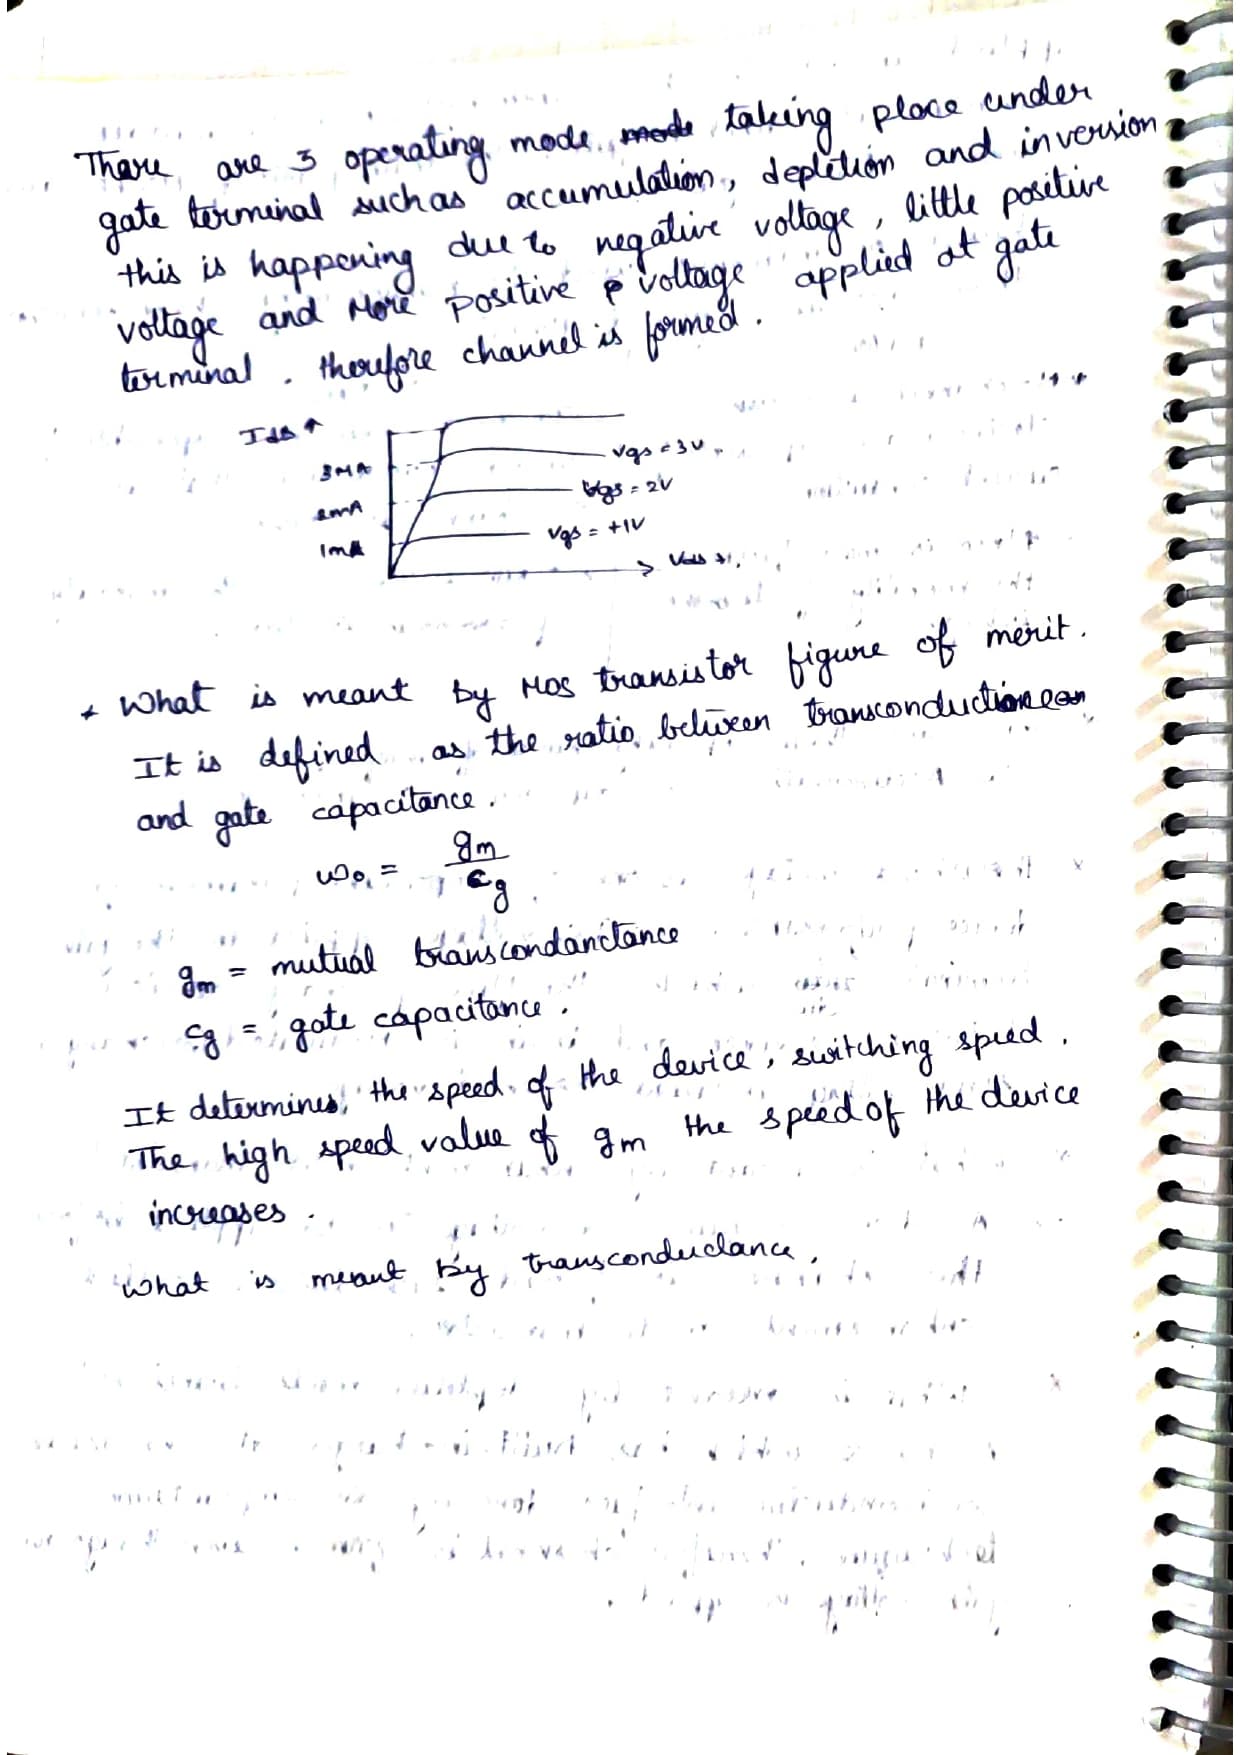 There are 3 operating mode taking place under
gate terminal such as accumulation, depletion and inversion
this is happening due to negative voltage, little positive
voltage and More positive voltage applied at gate
terminal. therefore channel is formed.
Ids ↑
3MA
2mA
1mA
Vgs = 3V
Vgs = 2V
Vgs = +1V
Vds
* What is meant by MOS transistor figure of merit.
It is defined as the ratio between
and gate capacitance.
ω0 = gm / cg
gm = mutual transcondanctance
cg = gate capacitance.
It determines, the speed of the device, switching speed.
The high speed value of gm the speed of the device
increases.
What is meant by transconductance.